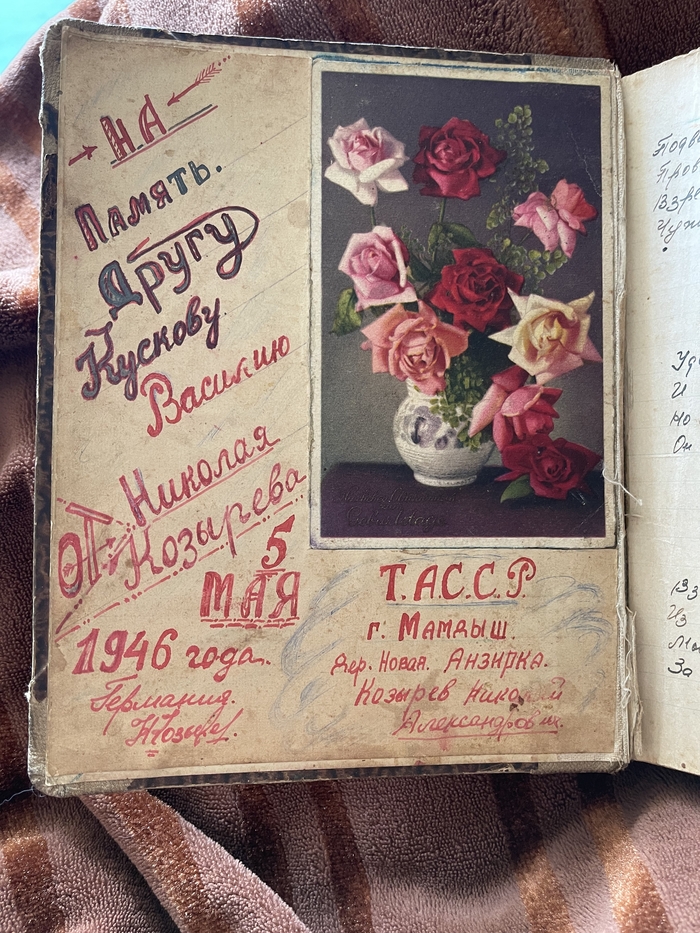 НА
Память.
Другу
Кускову
Василию
От Николая
Козырева
5
МАЯ
1946 года.
Германия.
Козырев.
Т.А.С.С.Р.
г. Мамдыш.
Дер. Новая. Анзирка.
Козырев Николай
Александрович.
Он
За